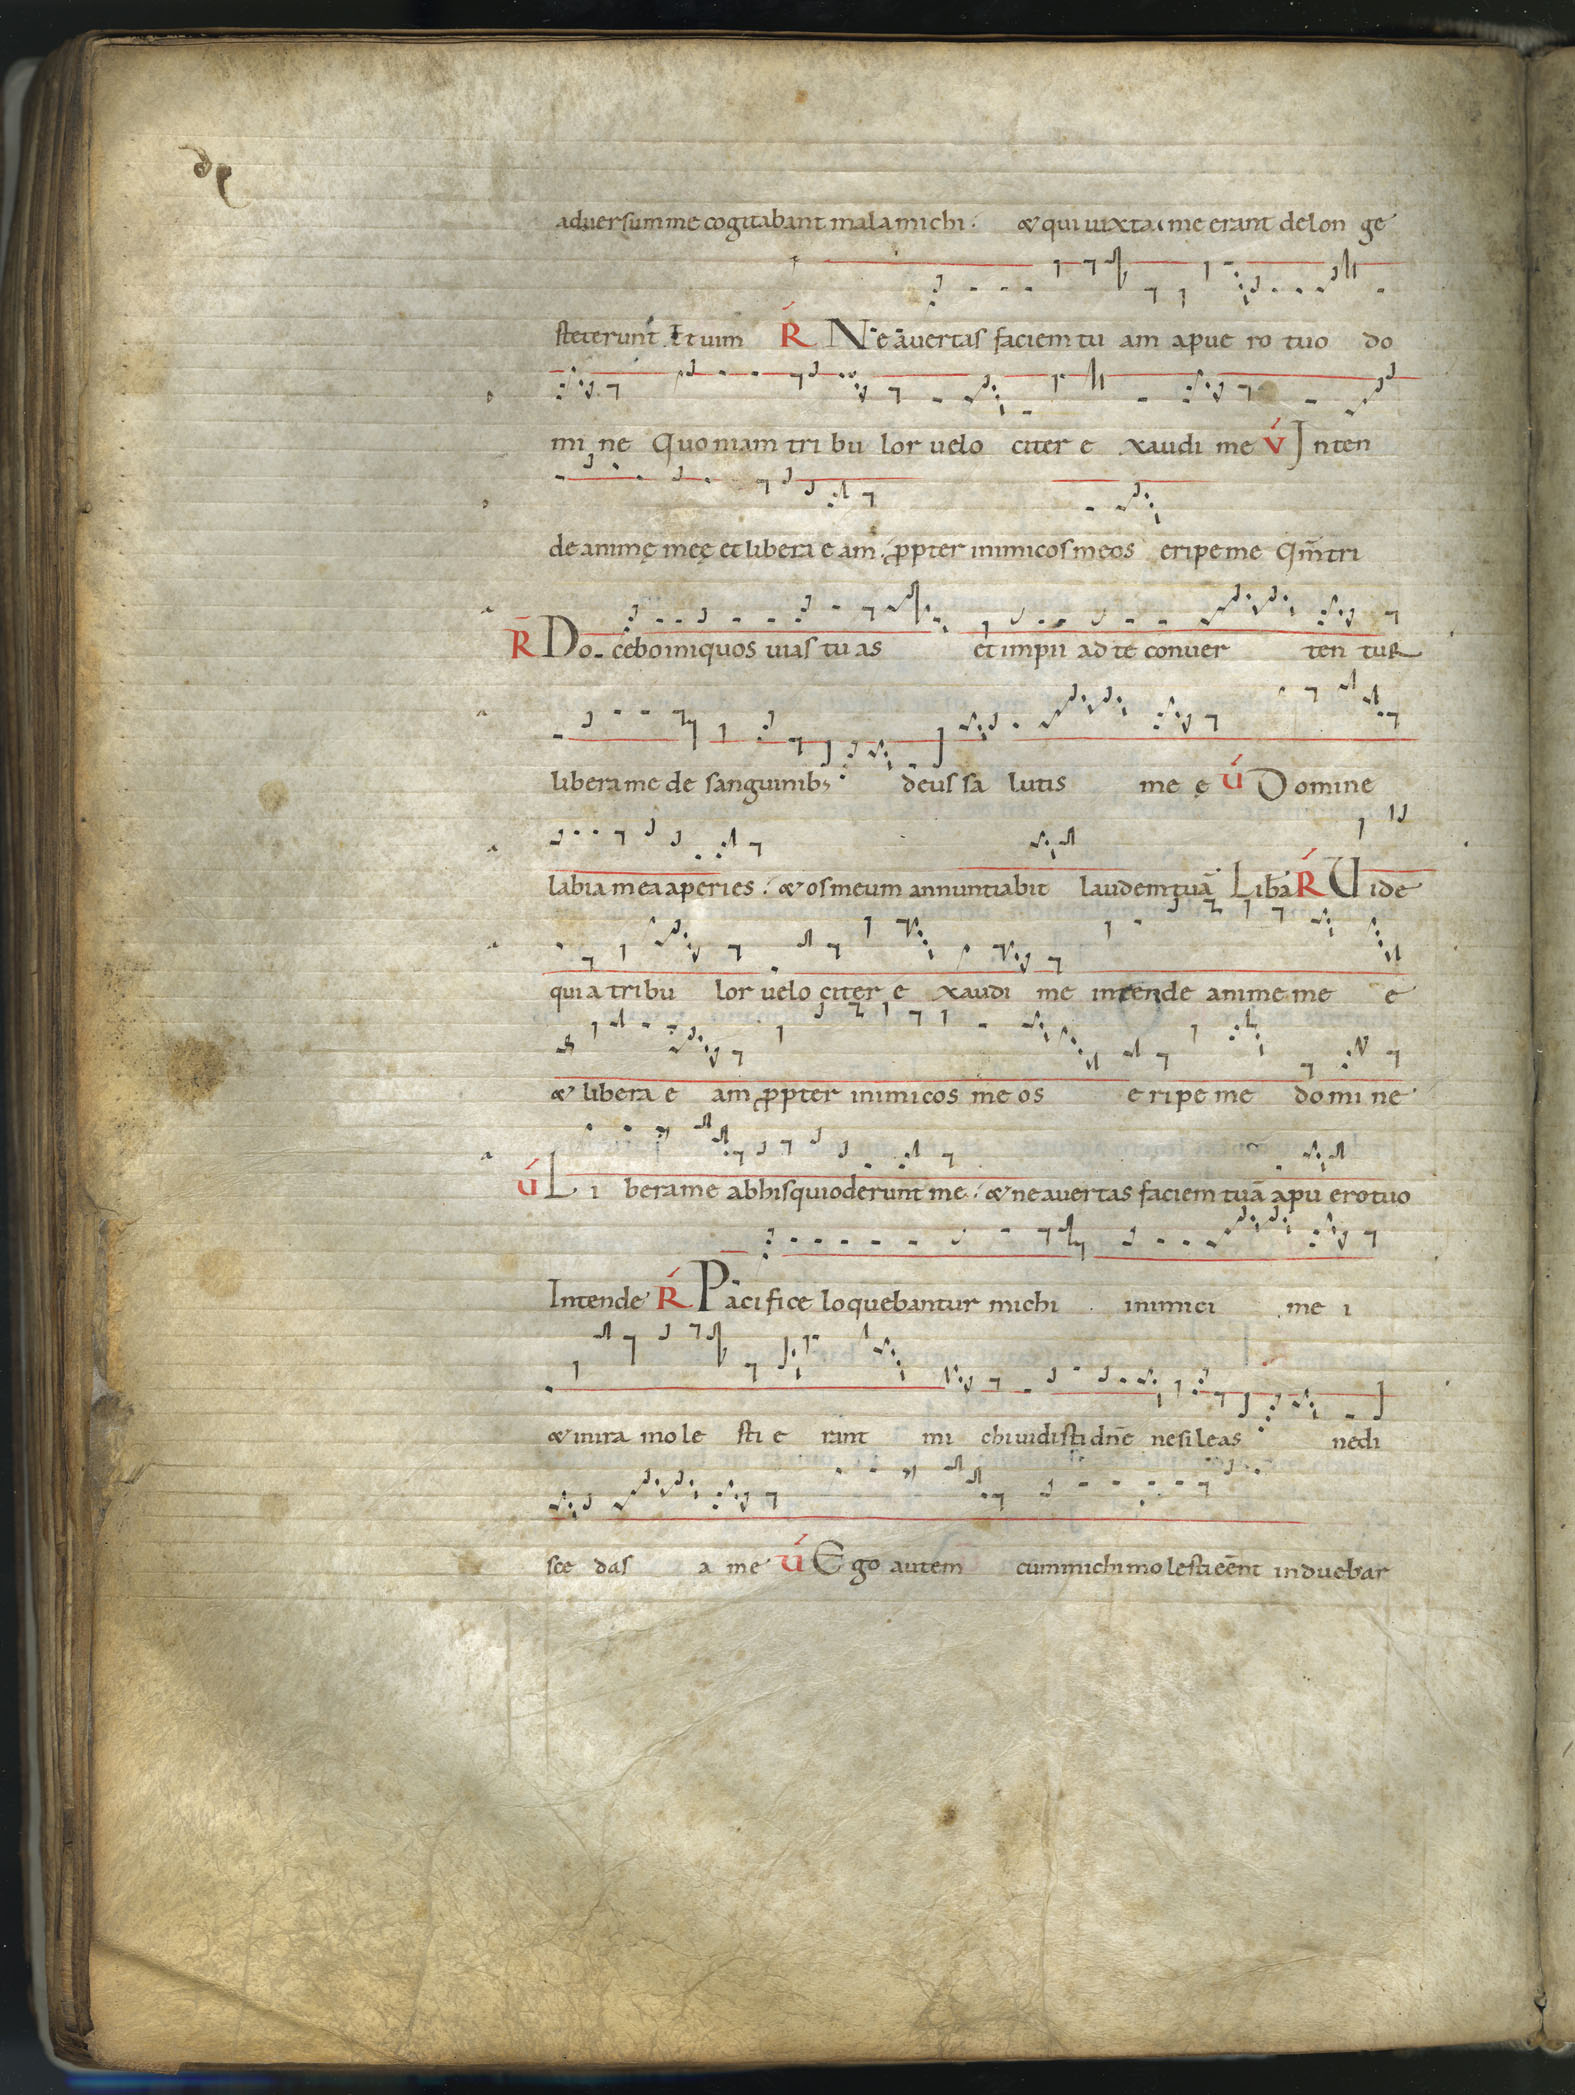 aduersum me cogitabant mala michi. & qui iuxta me erant de lon ge
steterunt. Et uim R̃ Ne auertas faciem tu am a pue ro tuo do
mi ne Quoniam tri bu lor uelo citer e xaudi me V́ Inten
de animę meę et libera e am. ꝓpter inimicos meos eripe me Qm̄ tri
R̃ Do cebo iniquos uias tu as et impii ad te conuer ten tur
libera me de sanguinibꝫ deus sa lutis me ę V́ Domine
labia mea aperies. & os meum annuntiabit laudem tuā Libera R̃ Uide
quia tribu lor uelo citer e xaudi me intende anime me e
& libera e am ꝓpter inimicos me os eripe me domine
V́ Li bera me ab his qui oderunt me. & ne auertas faciem tuā a pu ero tuo
Intende R̃ Pacifice loquebantur michi inimici me i
& in ira mo le sti e rant mi chi uidisti dn̄e ne sileas ne di
sce das a me V́ Ego autem cum michi molesti eēnt induebar